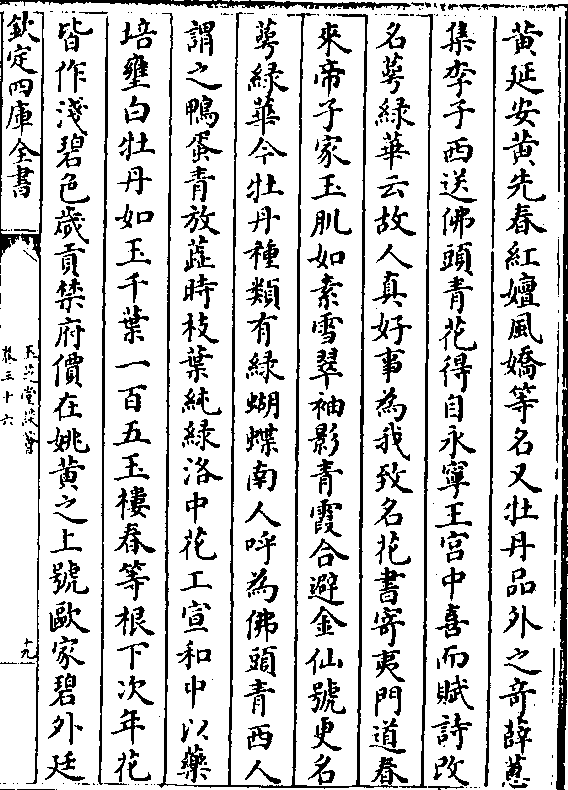 黃延安黃先春紅嬗風嬌等名又牡丹品外之奇薛蕙
集李子西送佛頭青花得自永寧王宮中喜而賦詩改
名萼綠華云故人真好事為我致名花書寄夷門道春
來帝子家玉肌如素雪翠袖影青霞合避金仙號更名
萼綠華今牡丹種類有綠蝴蝶南人呼為佛頭青西人
謂之鴨蛋青放蕋時枝葉純綠洛中花工宣和中以藥
培壅白牡丹如玉千葉一百五玉樓春等根下次年花
皆作淺碧色歲貢禁府價在姚黃之上號歐家碧外廷
欽定四庫全書
玉芝堂談薈
卷三十六
十九